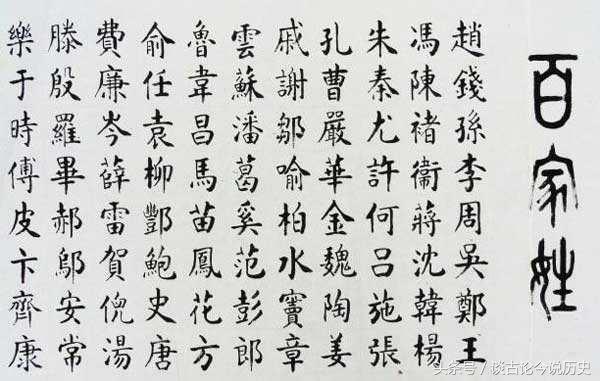 百家姓
趙錢孫李周吳鄭王
馮陳褚衞蔣沈韓楊
朱秦尤許何吕施張
孔曹嚴華金魏陶姜
戚謝鄒喻柏水竇章
雲蘇潘葛奚范彭郎
魯韋昌馬苗鳳花方
俞任袁柳酆鮑史唐
費廉岑薛雷賀倪湯
滕殷羅畢郝鄔安常
樂于時傅皮卞齊康
头条号/谈古论今说历史